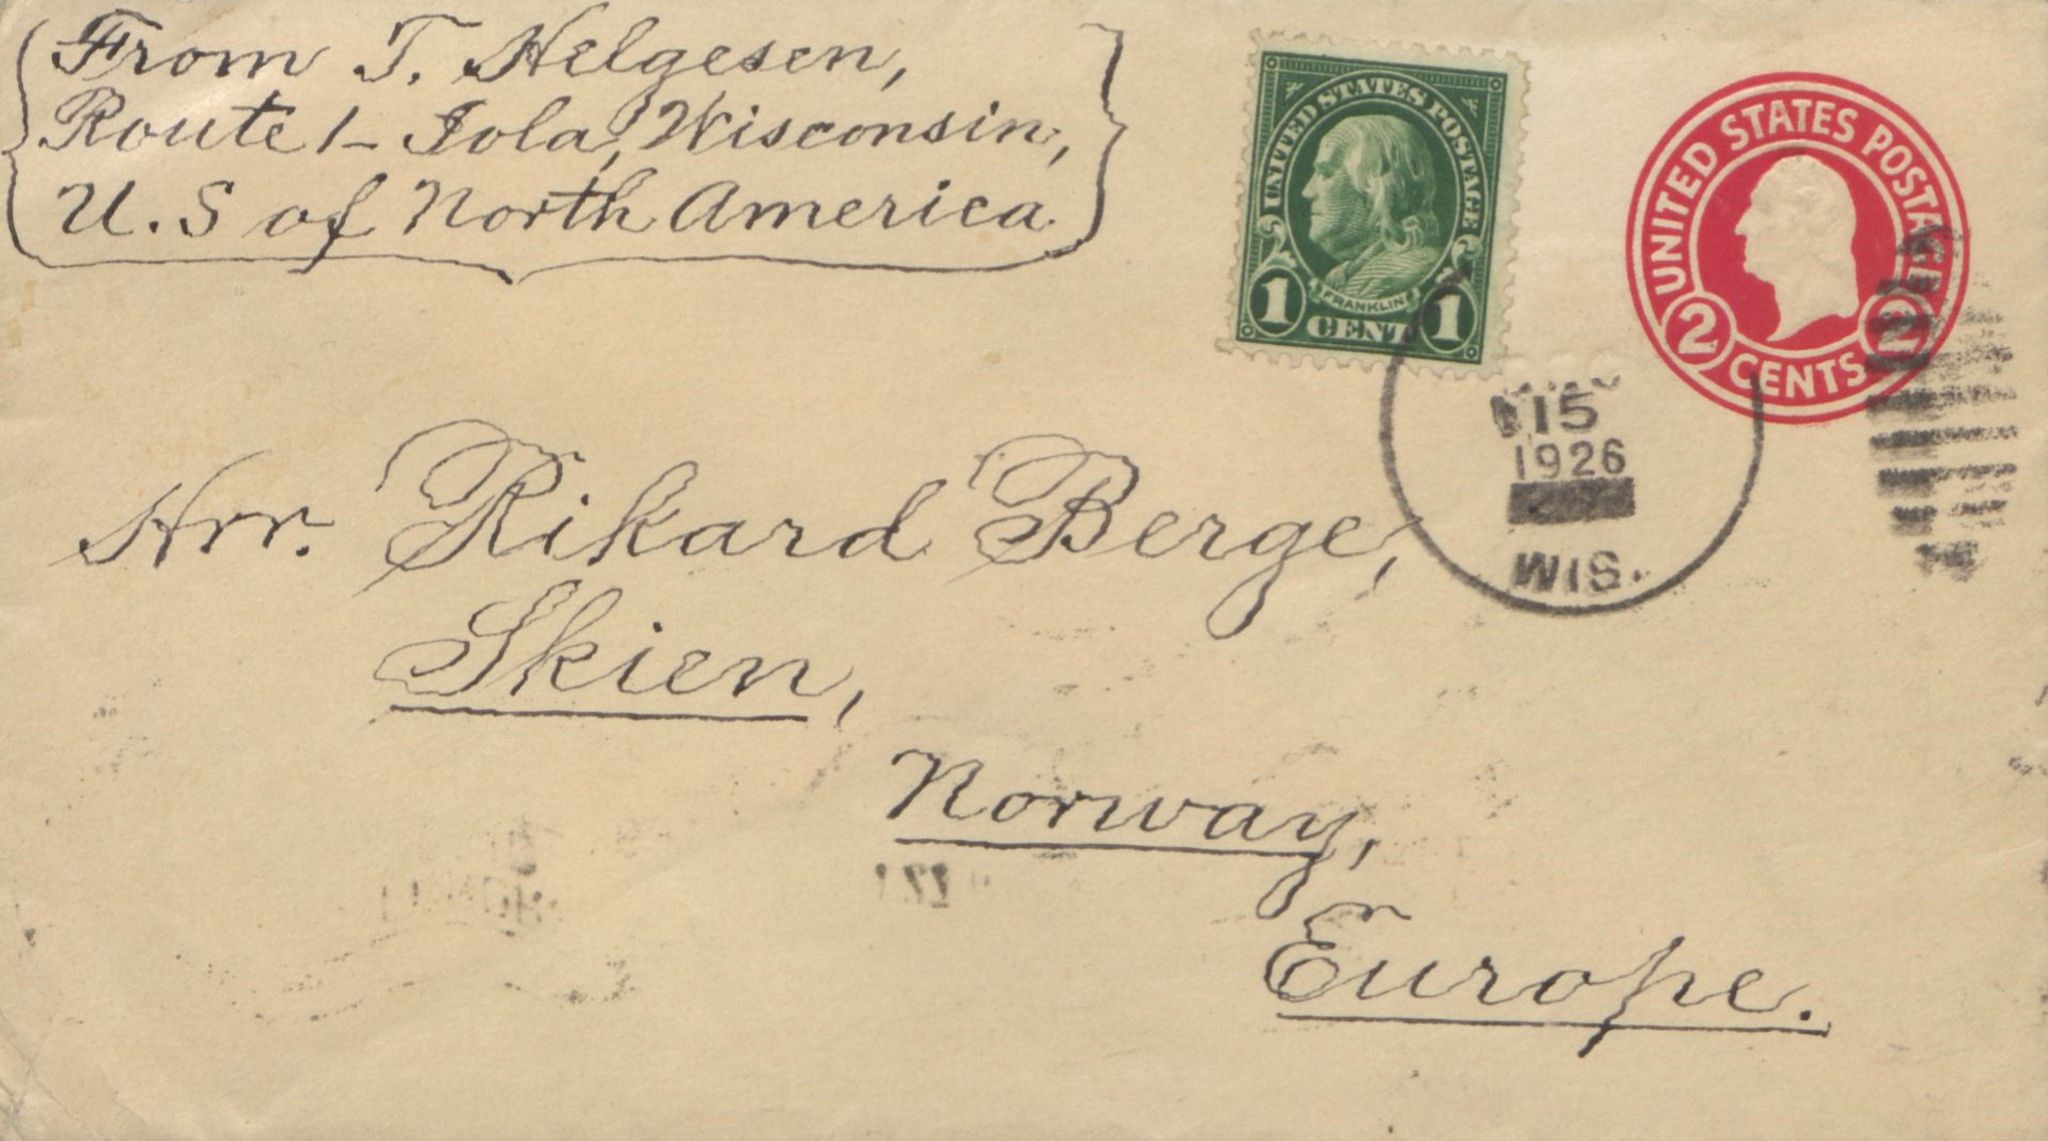 From T. Helgesen,
Route 1 - Iola, Wisconsin,
U.S of North America
UNITED STATES POSTAGE
FRANKLIN
1 CENT 1
UNITED STATES POSTAGE
2 CENTS 2
15
1926
WIS.
Hrr. Rikard Berge,
Skien,
Norway,
Europe.